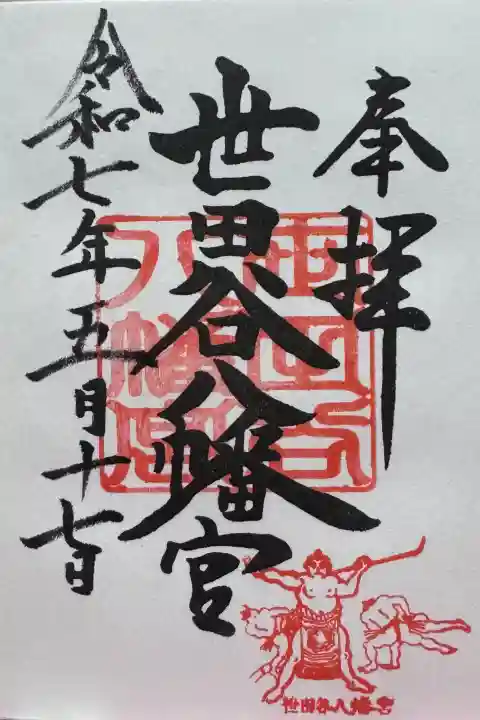 奉拝
世田谷八幡宮
世田谷
八幡宮
令和七年五月十七日
世田谷八幡宮